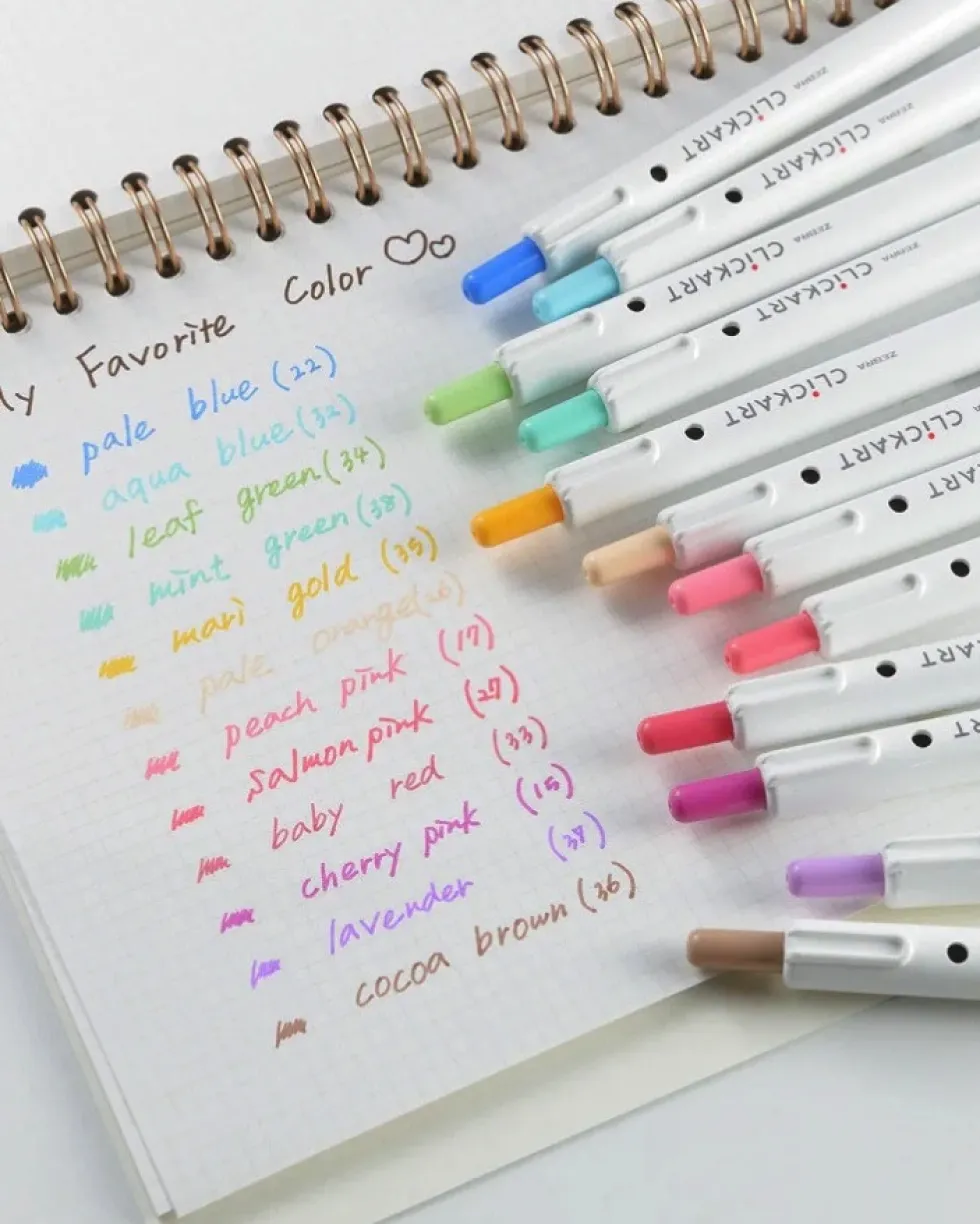 My Favorite Color ♡♡
pale blue (22)
aqua blue (32)
leaf green (34)
mint green (38)
mari gold (35)
pale orange (26)
peach pink (17)
salmon pink (27)
baby red (33)
cherry pink (15)
lavender (37)
cocoa brown (36)
CLiCKART ZEBRA
CLiCKART ZEBRA
CLiCKART ZEBRA
CLiCKART ZEBRA
CLiCKART ZEBRA
CLiCKART
ART
KART
RT